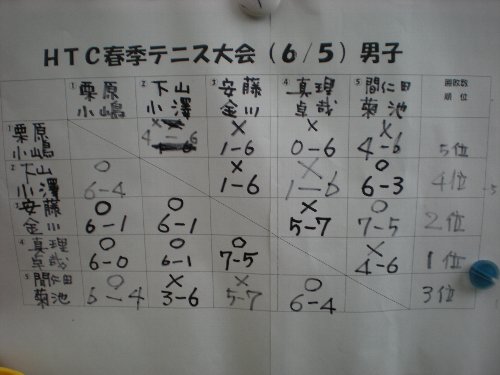 HTC春季テニス大会(6/5)男子
1 栗原 小嶋 2 下山 小澤 3 安藤 金川 4 真理 卓哉 5 間仁田 菊池 勝敗数 順位
1 栗原 小嶋 × 4-6 × 1-6 × 0-6 × 4-6 5位
2 下山 小澤 ○ 6-4 × 1-6 × 1-6 ○ 6-3 4位
3 安藤 金川 ○ 6-1 ○ 6-1 × 5-7 ○ 7-5 2位
4 真理 卓哉 ○ 6-0 ○ 6-1 ○ 7-5 × 4-6 1位
5 間仁田 菊池 ○ 6-4 × 3-6 × 5-7 ○ 6-4 3位